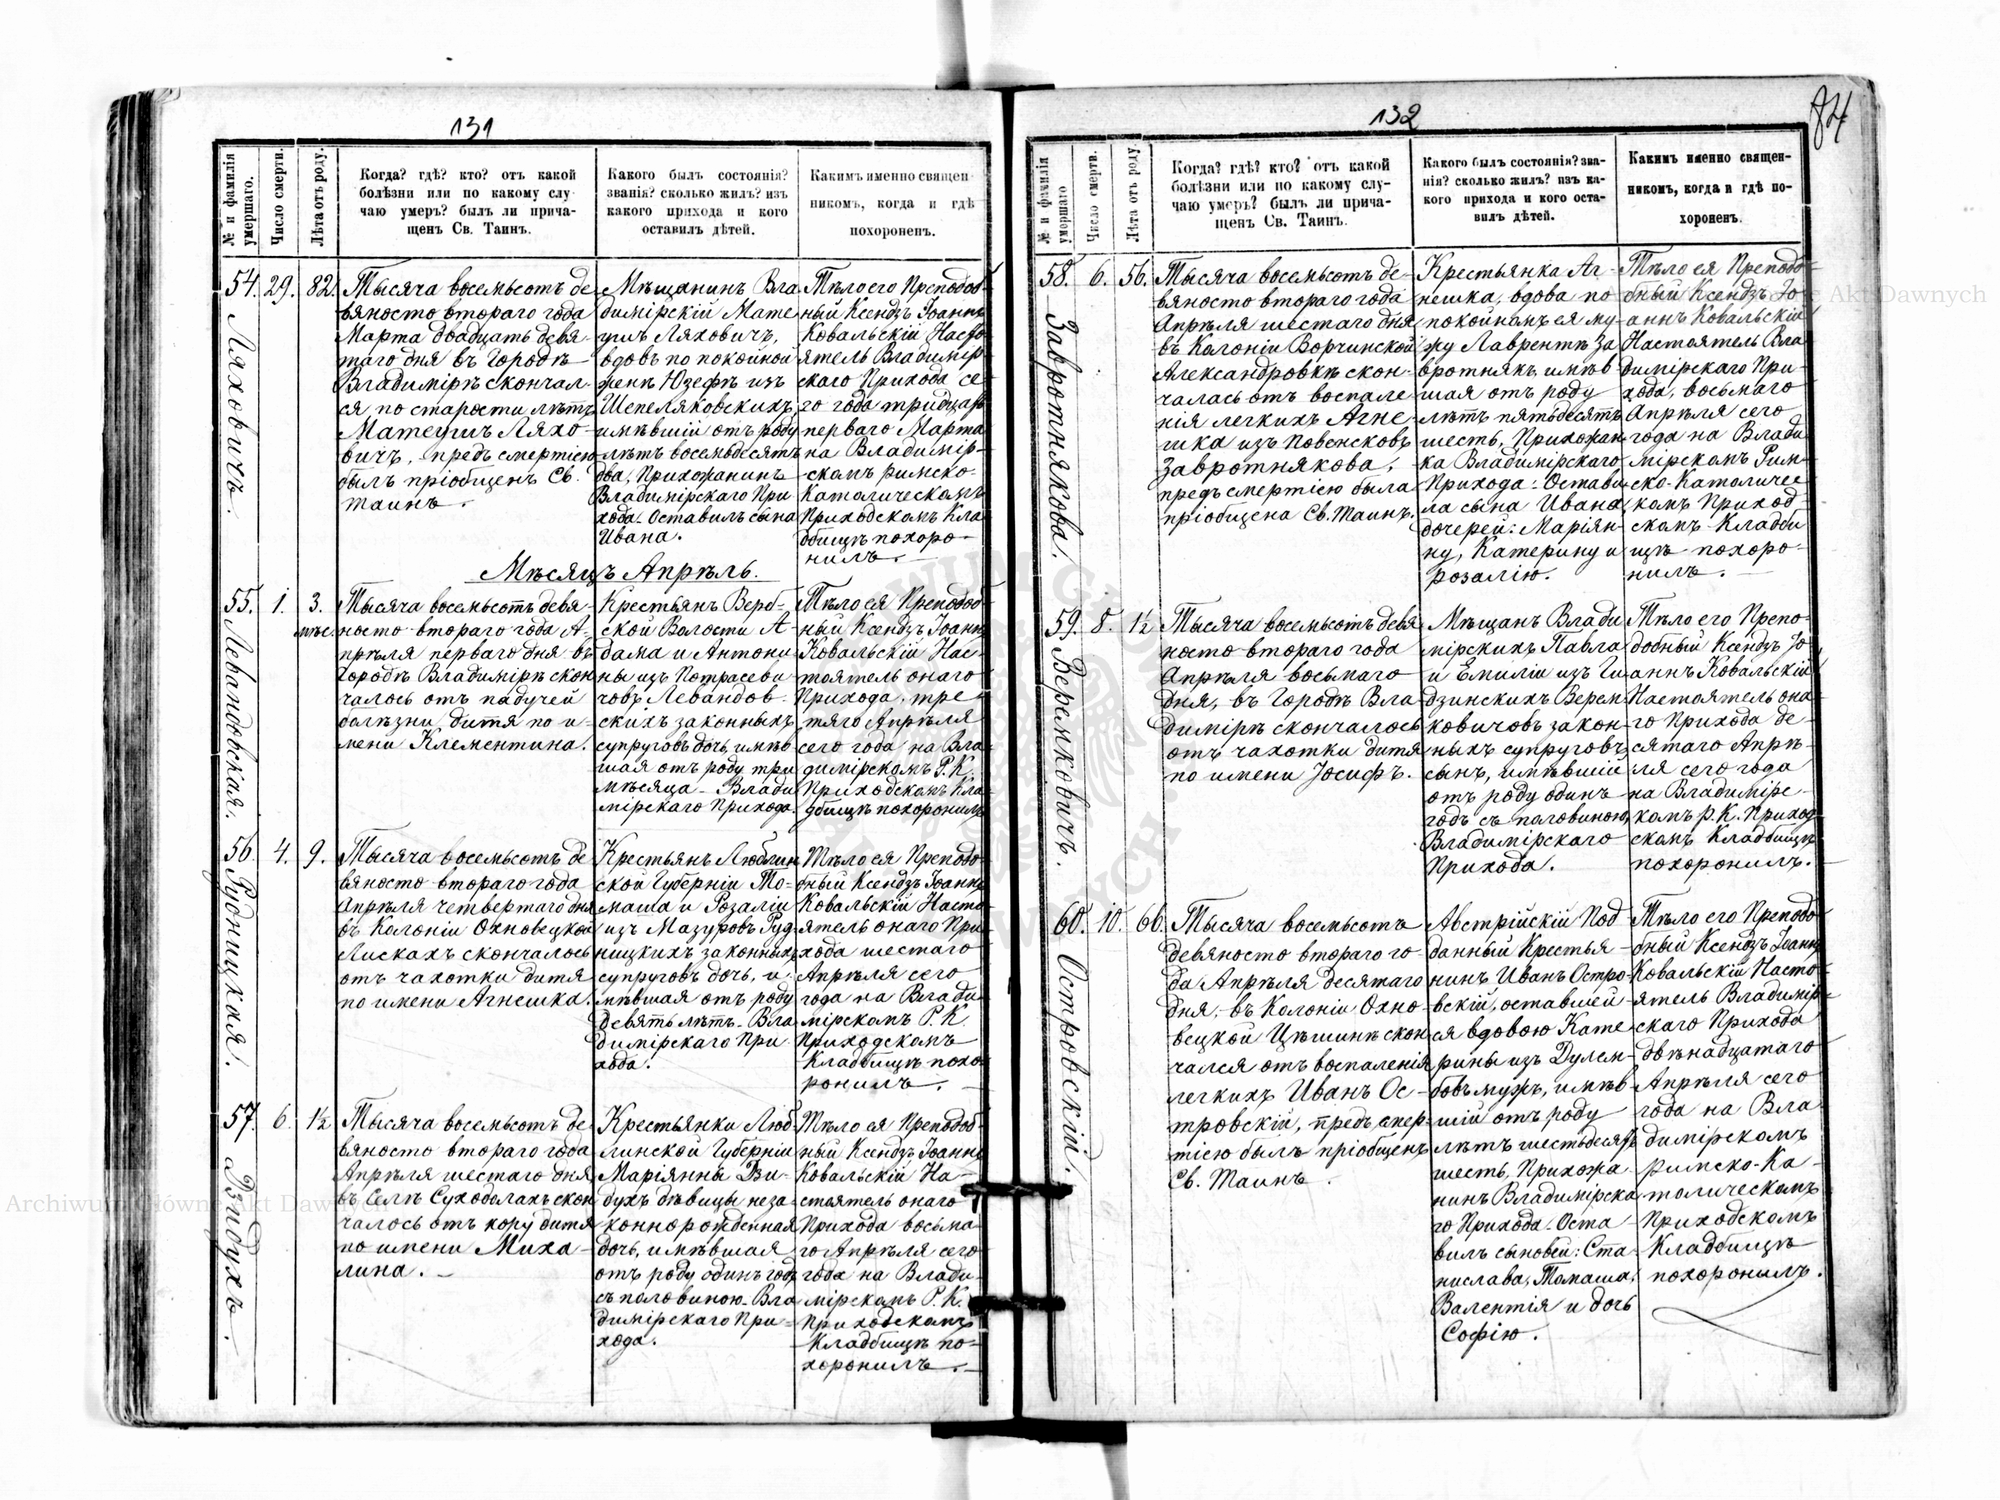 131
№ и фамилія умершаго.
Число смерти.
Лѣта отъ роду.
Когда? гдѣ? кто? отъ какой
болѣзни или по какому слу-
чаю умеръ? былъ ли прича-
щенъ Св. Таинъ.
Какого былъ состоянія?
званія? сколько жилъ? изъ
какого прихода и кого
оставилъ дѣтей.
Какимъ именно священ-
никомъ, когда и гдѣ
похороненъ.
54.
Ляховичъ.
29.
82.
Тысяча восемьсотъ де-
вяносто втораго года
Марта двадцать девя-
таго дня въ Городѣ
Владимірѣ скончал-
ся по старости лѣтъ
Матеушъ Ляхо-
вичъ, предъ смертію
былъ пріобщенъ Св.
Таинъ.
Мѣщанинъ Вла
димірскій Мате
ушъ Ляховичъ,
вдовъ по покойной
женѣ Юзефѣ изъ
Шепеляковскихъ,
имѣвшій отъ роду
лѣтъ восемьдесятъ
два, Прихожанинъ
Владимірскаго При
хода. Оставилъ сына
Ивана.
Тѣло его Преподоб-
ный Ксендзъ Іоаннъ
Ковальскій Насто
ятель Владимір-
скаго Прихода се-
го года тридцать
перваго Марта
на Владимір-
скомъ Римско-
Католическомъ
Приходскомъ Кла
дбищѣ похоро-
нилъ.
Мѣсяцъ Апрѣль.
55.
Левандовская.
1.
3.
мѣс.
Тысяча восемьсотъ девя-
носто втораго года А-
прѣля перваго дня въ
Городѣ Владимірѣ скон
чалось отъ падучей
болѣзни дитя по и-
мени Клементина.
Крестьянъ Верб-
ской Волости А-
дама и Антони
ны изъ Потрасеви
човъ Левандов-
скихъ законныхъ
супруговъ дочь, имѣв
шая отъ роду три
мѣсяца - Влади
мірскаго Прихода.
Тѣло ея Преподоб-
ный Ксендзъ Іоаннъ
Ковальскій Нас-
тоятель онаго
Прихода, тре-
тяго Апрѣля
сего года на Вла-
димірскомъ Р. К.
Приходскомъ Кла-
дбищѣ похоронилъ
56.
Рудницкая.
4.
9.
Тысяча восемьсотъ де
вяносто втораго года
Апрѣля четвертаго дня
въ Колоніи Охновецкой
Лискахъ скончалось
отъ чахотки дитя
по имени Агнешка.
Крестьянъ Люблин
ской Губерніи То-
маша и Розаліи
изъ Мазуровъ Руд-
ницкихъ законныхъ
супруговъ дочь, и-
мѣвшая отъ роду
девять лѣтъ - Вла
димірскаго При
хода.
Тѣло ея Преподо-
бный Ксендзъ Іоаннъ
Ковальскій Насто
ятель онаго При-
хода шестаго
Апрѣля сего
года на Влади-
мірскомъ Р. К.
Приходскомъ
Кладбищѣ похо-
ронилъ.
57.
Дзидухъ.
6.
1½
Тысяча восемьсотъ де-
вяносто втораго года
Апрѣля шестаго дня,
въ Селѣ Суходолахъ скон
чалось отъ кору дитя
по имени Миха-
лина.
Крестьянки Люб-
линской Губерніи
Маріянны Дзи-
духъ дѣвицы неза-
конно рожденная
дочь, имѣвшая
отъ роду одинъ годъ
съ половиною - Вла
димірскаго При-
хода.
Тѣло ея Преподоб-
ный Ксендзъ Іоаннъ
Ковальскій На-
стоятель онаго
Прихода восьма-
го Апрѣля сего
года на Влади-
мірскомъ Р. К.
Приходскомъ
Кладбищѣ по-
хоронилъ.
132
84
№ и фамилія умершаго
Число смерти.
Лѣта отъ роду.
Когда? гдѣ? кто? отъ какой
болѣзни или по какому слу-
чаю умеръ? былъ ли прича-
щенъ Св. Таинъ.
Какого былъ состоянія? зва-
нія? сколько жилъ? изъ ка-
кого прихода и кого оста-
вилъ дѣтей.
Какимъ именно священ-
никомъ, когда и гдѣ по-
хороненъ.
58.
Завротнякова.
6.
56.
Тысяча восемьсотъ де-
вяносто втораго года
Апрѣля шестаго дня
въ Колоніи Ворчинской
Александровкѣ скон-
чалась отъ воспале-
нія легкихъ Агне-
шка изъ Повенсковъ
Завротнякова,
предъ смертію была
пріобщена Св. Таинъ.
Крестьянка Аг-
нешка, вдова по
покойномъ ея му-
жу Лаврентѣ За
вротнякѣ, имѣв
шая отъ роду
лѣтъ пятьдесятъ
шесть, Прихожан
ка Владимірскаго
Прихода. Остави
ла сына Ивана
дочерей: Маріян-
ну, Катерину и
Розалію.
Тѣло ея Преподо-
бный Ксендзъ Іо-
аннъ Ковальскій
Настоятель Вла
димірскаго При-
хода, восьмаго
Апрѣля сего
года на Влади
мірскомъ Рим-
ско-Католичес-
комъ Приход
скомъ Кладби
щѣ похоро-
нилъ.
59.
Веремковичъ.
8.
1½
Тысяча восемьсотъ девя
носто втораго года
Апрѣля восьмаго
дня, въ Городѣ Вла
димірѣ скончалось
отъ чахотки дитя
по имени Іосифъ.
Мѣщанъ Влади
мірскихъ Павла
и Емиліи изъ Ги
дзинскихъ Верем
ковичовъ закон-
ныхъ супруговъ
сынъ, имѣвшій
отъ роду одинъ
годъ съ половиною
Владимірскаго
Прихода.
Тѣло его Препо-
добный Ксендзъ Іо
аннъ Ковальскій
Настоятель она
го Прихода де-
сятаго Апрѣ-
ля сего года
на Владимірс-
комъ Р. К. Приход
скомъ Кладбищѣ
похоронилъ.
60.
Островскій.
10.
66.
Тысяча восемьсотъ
девяносто втораго го-
да Апрѣля десятаго
дня, въ Колоніи Охно-
вецкой Цѣшинѣ скон
чался отъ воспаленія
легкихъ Иванъ Ос-
тровскій, предъ смер-
тію былъ пріобщенъ
Св. Таинъ.
Австрійскій Под
данный Крестья-
нинъ Иванъ Остро-
вскій, оставшей-
ся вдовою Кате-
рины изъ Дулем-
бовъ мужъ, имѣв
шій отъ роду
лѣтъ шестьдесятъ
шесть, Прихожа-
нинъ Владимірска
го Прихода. Оста
вилъ сыновей: Ста-
нислава, Томаша,
Валентія и дочь
Софію.
Тѣло его Преподо-
бный Ксендзъ Іоаннъ
Ковальскій Насто-
ятель Владимір-
скаго Прихода
двѣнадцатаго
Апрѣля сего
года на Вла-
димірскомъ
Римско-Ка-
толическомъ
Приходскомъ
Кладбищѣ
похоронилъ.
Archiwum Główne Akt Dawnych